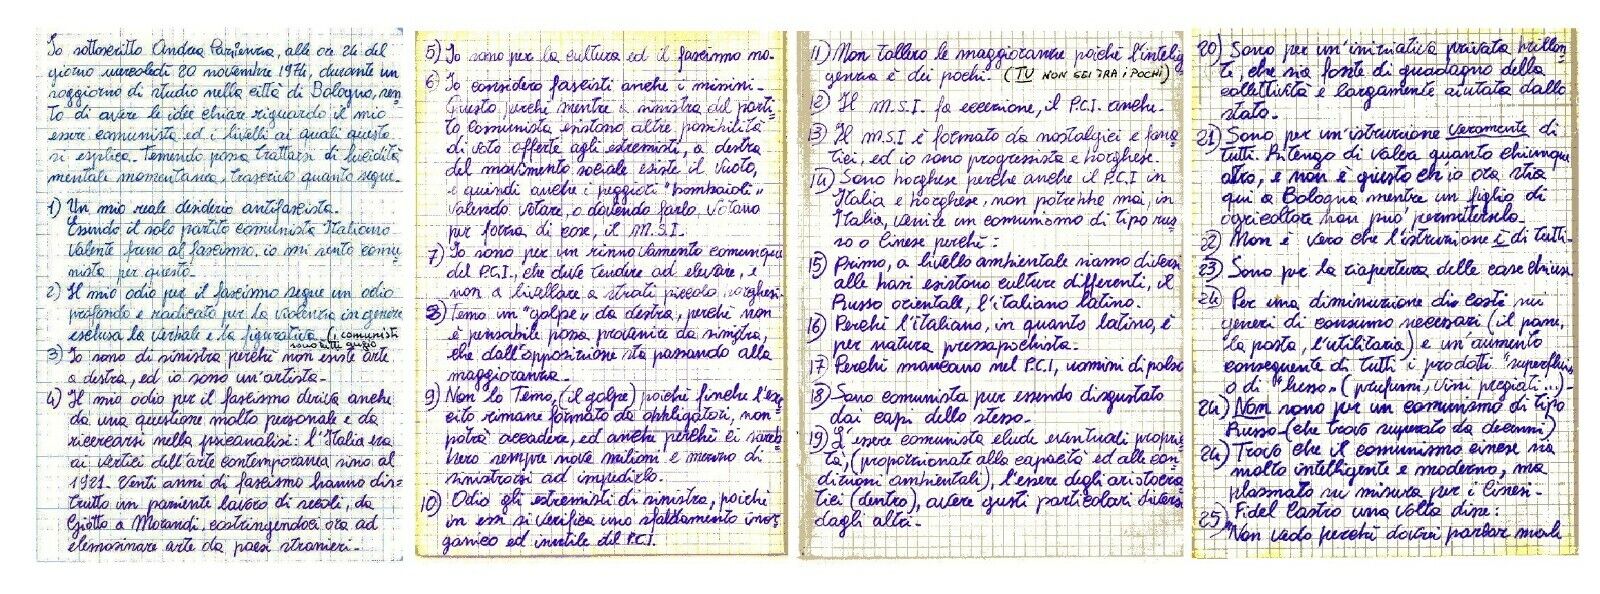 Io sottoscritto Andrea Pazienza, alle ore 24 del
giorno mercoledì 20 novembre 1974, durante un
soggiorno di studio nella città di Bologna, sen=
to di avere le idee chiare riguardo il mio
essere comunista ed i livelli ai quali questo
si esplica. Temendo possa trattarsi di lucidità
mentale momentanea, trascrivo quanto segue.
1) Un mio reale desiderio antifascista.
Essendo il solo partito comunista Italiano
valente freno al fascismo, io mi sento comu=
nista per questo.
2) Il mio odio per il fascismo segue un odio
profondo e radicato per la violenza in genere
esclusa la verbale e la figurativa (i comunisti
sono tutti
3) Io sono di sinistra perché non esiste arte
a destra, ed io sono un'artista.
4) Il mio odio per il fascismo deriva anche
da una questione molto personale e da
ricercarsi nella psicanalisi: l'Italia era
ai vertici dell'arte contemporanea sino al
1921. Venti anni di fascismo hanno dis=
trutto un paziente lavoro di secoli, da
Giotto a Morandi, costringendoci ora ad
elemosinare arte da paesi stranieri.
5) Io sono per la cultura ed il fascismo no.
6) Io considero fascisti anche i missini.
Questo perché mentre a sinistra del parti=
to comunista esistono altre possibilità
di voto offerte agli estremisti, a destra
del movimento sociale esiste il vuoto,
e quindi anche i peggiori "bombaioli"
valendo votare, o dovendo farlo, votano
per forza di cose, il M.S.I.
7) Io sono per un rinnovamento comunque
del P.C.I., che deve tendere ad elevare, e
non a livellare a strati piccolo borghesi.
8) Temo un "golpe" da destra, perché non
è pensabile possa provenire da sinistra,
che dall'opposizione sta passando alla
maggioranza.
9) Non lo temo, (il golpe) poiché finché l'eser
cito rimane formato da obbligatori, non
potrà accadere, ed anche perché ci sareb
bero sempre nove milioni e mezzo di
sinistrorsi ad impedirlo.
10) Odio gli estremisti di sinistra, poiché
in essi si verifica uno sfaldamento inor=
ganico ed inutile del P.C.I.
11) Non tollero le maggioranze poiché l'intelig
genza è dei pochi. (TU NON SEI TRA I POCHI)
12) Il M.S.I. fa eccezione, il P.C.I. anche.
13) Il M.S.I è formato da nostalgici e fana=
tici, ed io sono progressista e borghese.
14) Sono borghese perché anche il P.C.I in
Italia è borghese, non potrebbe mai, in
Italia, venire un comunismo di tipo rus=
so o Cinese perché:
15) Primo, a livello ambientale siamo diversi
alle basi esistono culture differenti, il
Russo orientale, l'italiano latino.
16) Perché l'italiano, in quanto latino, è
per natura pressapochista.
17) Perché mancano nel P.C.I, uomini di polso
18) Sono comunista pur essendo disgustato
dai capi dello stesso.
19) L'essere comunista elude eventuali proprie=
tà, (proporzionate alla capacità ed alle con=
dizioni ambientali), l'essere degli aristocra=
tici (dentro), avere gusti particolari diversi
dagli altri.
20) Sono per un'iniziativa privata brillan=
te, che sia fonte di guadagno della
collettività e largamente aiutata dallo
stato.
21) Sono per un'istruzione veramente di
tutti. Ritengo di valer quanto chiunque
altro, e non è giusto ch'io ora stia
qui a Bologna mentre un figlio di
agricoltore non può permetterselo.
22) Non è vero che l'istruzione è di tutti.
23) Sono per la riapertura delle case chiuse
24) Per una diminuzione dei costi sui
generi di consumo necessari (il pane,
la pasta, l'utilitaria) e un aumento
conseguente di tutti i prodotti "superflui"
o di "lusso" (profumi, vini pregiati...).
24) Non sono per un comunismo di tipo
Russo (che trovo superato da decenni)
24) Trovo che il comunismo cinese sia
molto intelligente e moderno, ma
plasmato su misura per i Cinesi.
25) Fidel Castro una volta disse:
"Non vedo perché dovrei parlar male